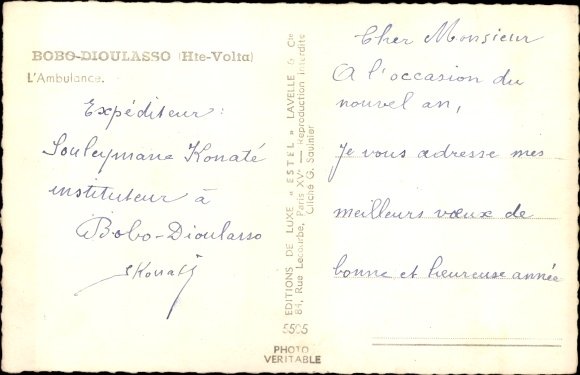 BOBO-DIOULASSO (Hte-Volta)
L'Ambulance.
Expéditeur:
Souleymane Konaté
instituteur à
Bobo-Dioulasso
SKonaté
EDITIONS DE LUXE « ESTEL » LAVELLE & Cie
84, Rue Lecourbe, Paris XVe — Reproduction interdite
Cliché G. Saulnier
5595
PHOTO
VERITABLE
Cher Monsieur
A l'occasion du
nouvel an,
Je vous adresse mes
meilleurs vœux de
bonne et heureuse année